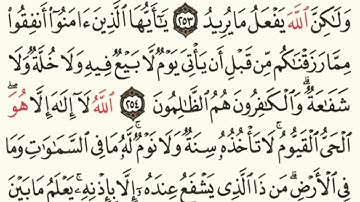 وَلَٰكِنَّ ٱللَّهَ يَفْعَلُ مَا يُرِيدُ ﴿٢٥٣﴾ يَٰٓأَيُّهَا ٱلَّذِينَ ءَامَنُوٓا۟ أَنفِقُوا۟
مِمَّا رَزَقْنَٰكُم مِّن قَبْلِ أَن يَأْتِىَ يَوْمٌ لَّا بَيْعٌ فِيهِ وَلَا خُلَّةٌ وَلَا
شَفَٰعَةٌ ۗ وَٱلْكَٰفِرُونَ هُمُ ٱلظَّٰلِمُونَ ﴿٢٥٤﴾ ٱللَّهُ لَآ إِلَٰهَ إِلَّا هُوَ
ٱلْحَىُّ ٱلْقَيُّومُ ۚ لَا تَأْخُذُهُۥ سِنَةٌ وَلَا نَوْمٌ ۚ لَّهُۥ مَا فِى ٱلسَّمَٰوَٰتِ وَمَا
فِى ٱلْأَرْضِ ۗ مَن ذَا ٱلَّذِى يَشْفَعُ عِندَهُۥٓ إِلَّا بِإِذْنِهِۦ ۚ يَعْلَمُ مَا بَيْنَ